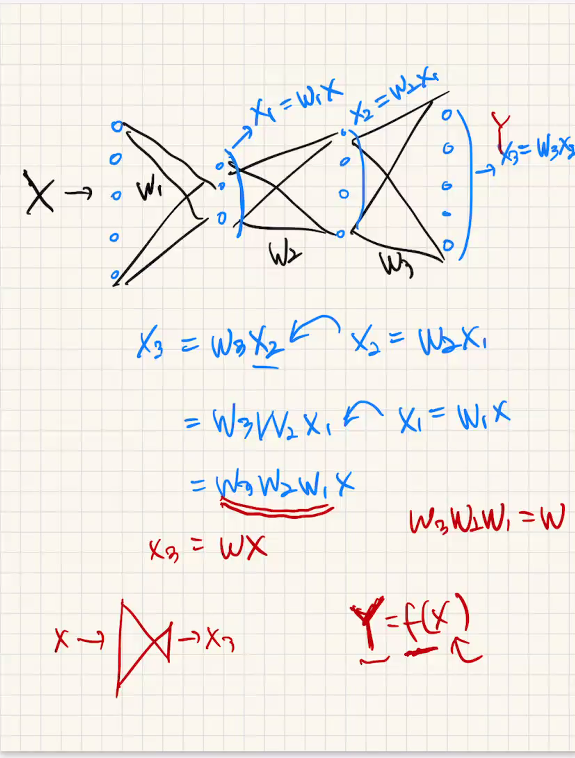 X₁ = W₁X
X₂ = W₂X₁
X →
W₁
W₂
W₃
Y
X₃ = W₃X₂
X₃ = W₃X₂ X₂ = W₂X₁
= W₃W₂X₁ X₁ = W₁X
= W₃W₂W₁X
W₃W₂W₁ = W
X₃ = WX
Y = f(X)
X → → X₃